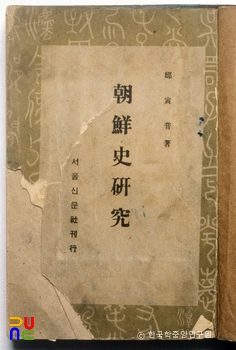 鄭寅普 著
朝鮮史硏究
서울신문社刊行
© 한국학중앙연구원